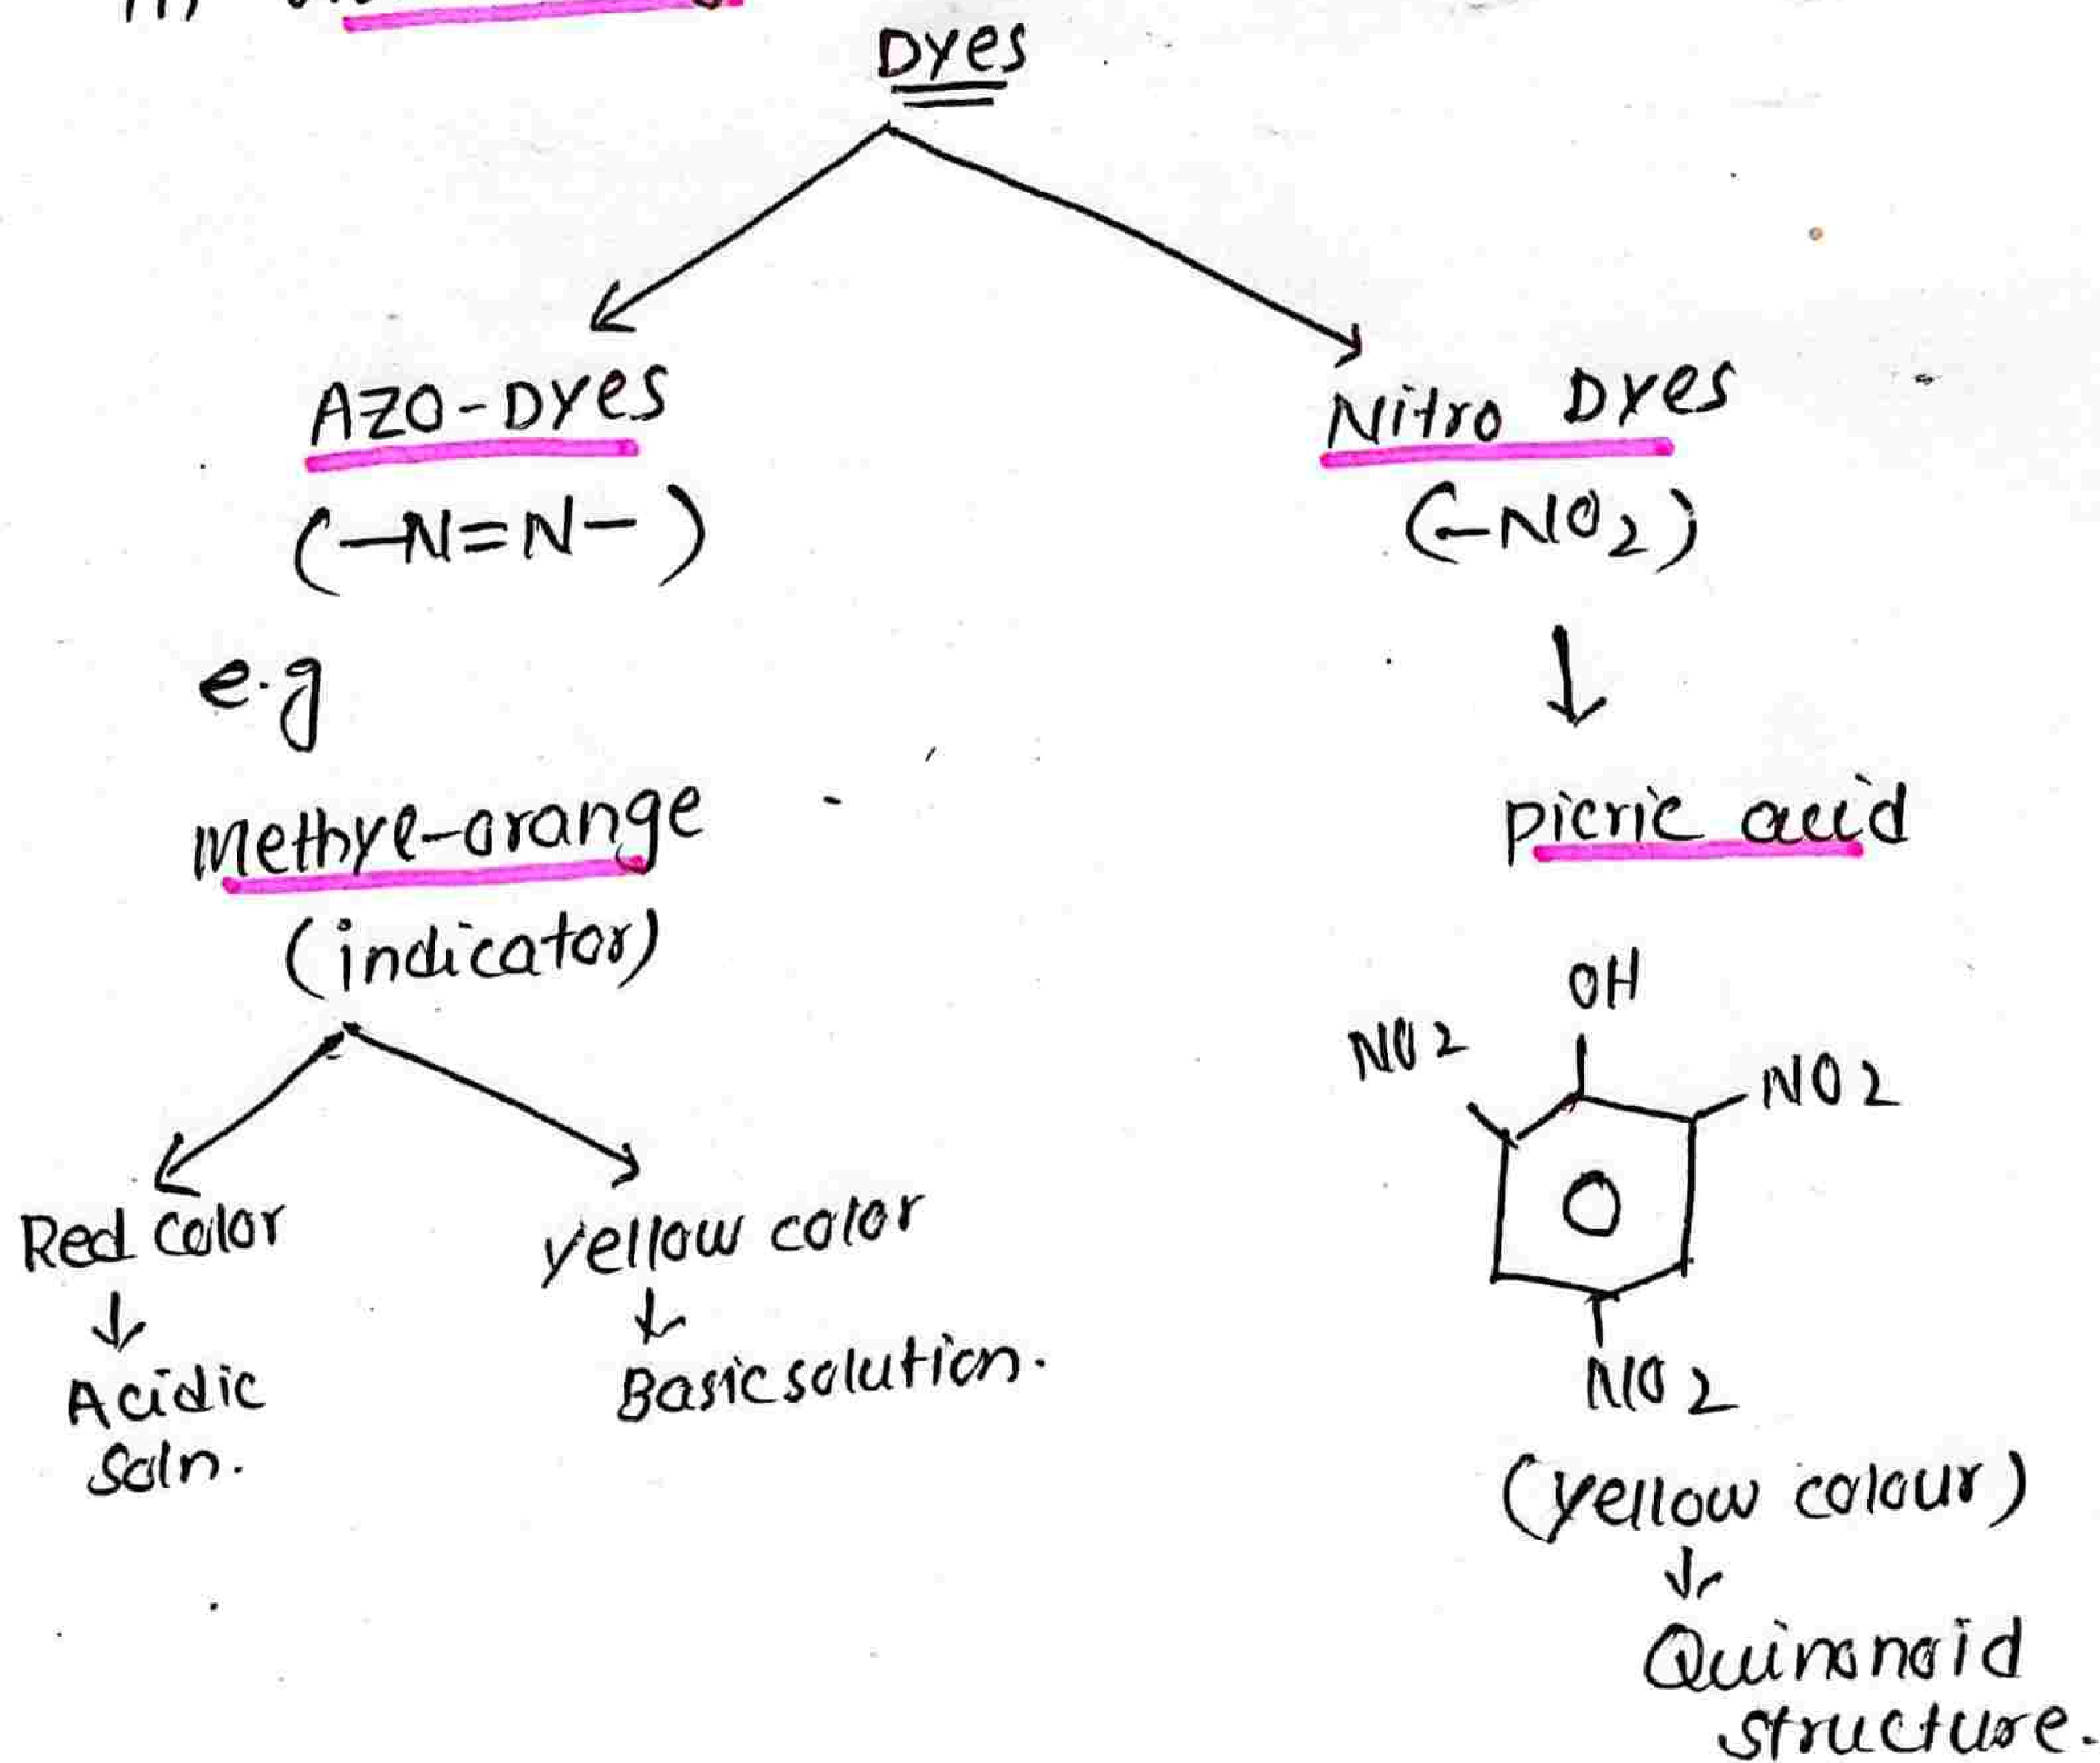 Dyes
AZO-Dyes
(-N=N-)
e.g
Methyl-orange
(indicator)
Red color
Acidic
Soln.
yellow color
Basic solution.
Nitro Dyes
(-NO2)
picric acid
OH
NO2
NO2
NO2
(yellow colour)
Quinonoid
structure.